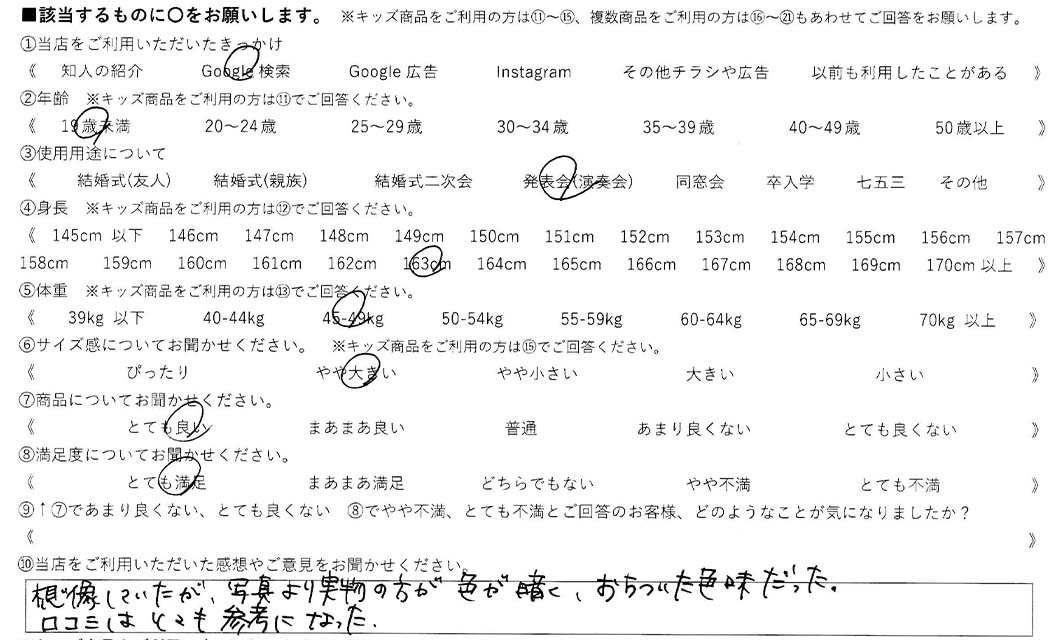 ■該当するものに〇をお願いします。 ※キッズ商品をご利用の方は⑪～⑮、複数商品をご利用の方は⑯～㉑もあわせてご回答をお願いします。
①当店をご利用いただいたきっかけ
《 知人の紹介 Google 検索 Google 広告 Instagram その他チラシや広告 以前も利用したことがある 》
②年齢 ※キッズ商品をご利用の方は⑪でご回答ください。
《 19歳未満 20～24歳 25～29歳 30～34歳 35～39歳 40～49歳 50歳以上 》
③使用用途について
《 結婚式(友人) 結婚式(親族) 結婚式二次会 発表会(演奏会) 同窓会 卒入学 七五三 その他 》
④身長 ※キッズ商品をご利用の方は⑫でご回答ください。
《 145cm 以下 146cm 147cm 148cm 149cm 150cm 151cm 152cm 153cm 154cm 155cm 156cm 157cm
158cm 159cm 160cm 161cm 162cm 163cm 164cm 165cm 166cm 167cm 168cm 169cm 170cm 以上 》
⑤体重 ※キッズ商品をご利用の方は⑬でご回答ください。
《 39kg 以下 40-44kg 45-49kg 50-54kg 55-59kg 60-64kg 65-69kg 70kg 以上 》
⑥サイズ感についてお聞かせください。 ※キッズ商品をご利用の方は⑮でご回答ください。
《 ぴったり やや大きい やや小さい 大きい 小さい 》
⑦商品についてお聞かせください。
《 とても良い まあまあ良い 普通 あまり良くない とても良くない 》
⑧満足度についてお聞かせください。
《 とても満足 まあまあ満足 どちらでもない やや不満 とても不満 》
⑨↑⑦であまり良くない、とても良くない ⑧でやや不満、とても不満とご回答のお客様、どのようなことが気になりましたか？
《 》
⑩当店をご利用いただいた感想やご意見をお聞かせください。
想像していたが、写真より実物の方が色が暗く、おちついた色味だった。
口コミはとても参考になった。